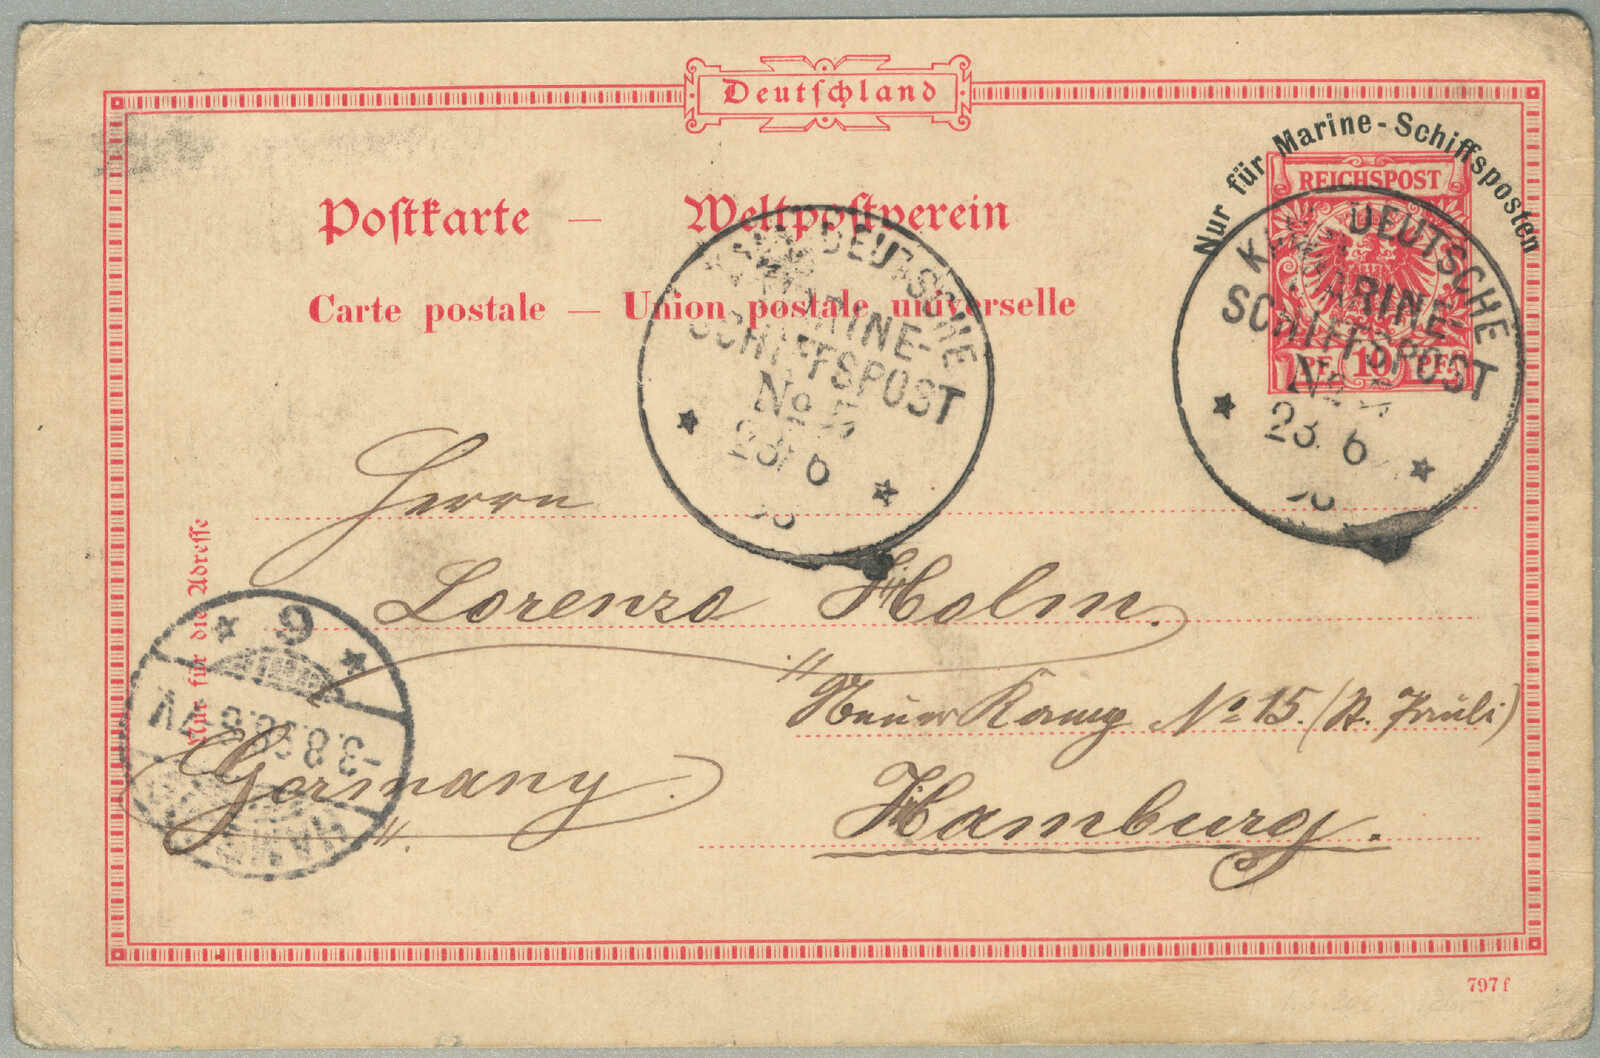 Deutschland
Nur für Marine-Schiffsposten
REICHSPOST
PF. 10 PF.
Postkarte — Weltpostverein
Carte postale — Union postale universelle
DEUTSCHE
MARINE-
SCHIFFSPOST
No
23/6
KAIS. DEUTSCHE
MARINE-
SCHIFFSPOST
No
23 6
Nur für die Adresse
Herrn
Lorenzo Holm.
Neuer Kamp No 15. (St. Pauli)
Germany.
Hamburg.
9
-3.8.
HAMB
797 f